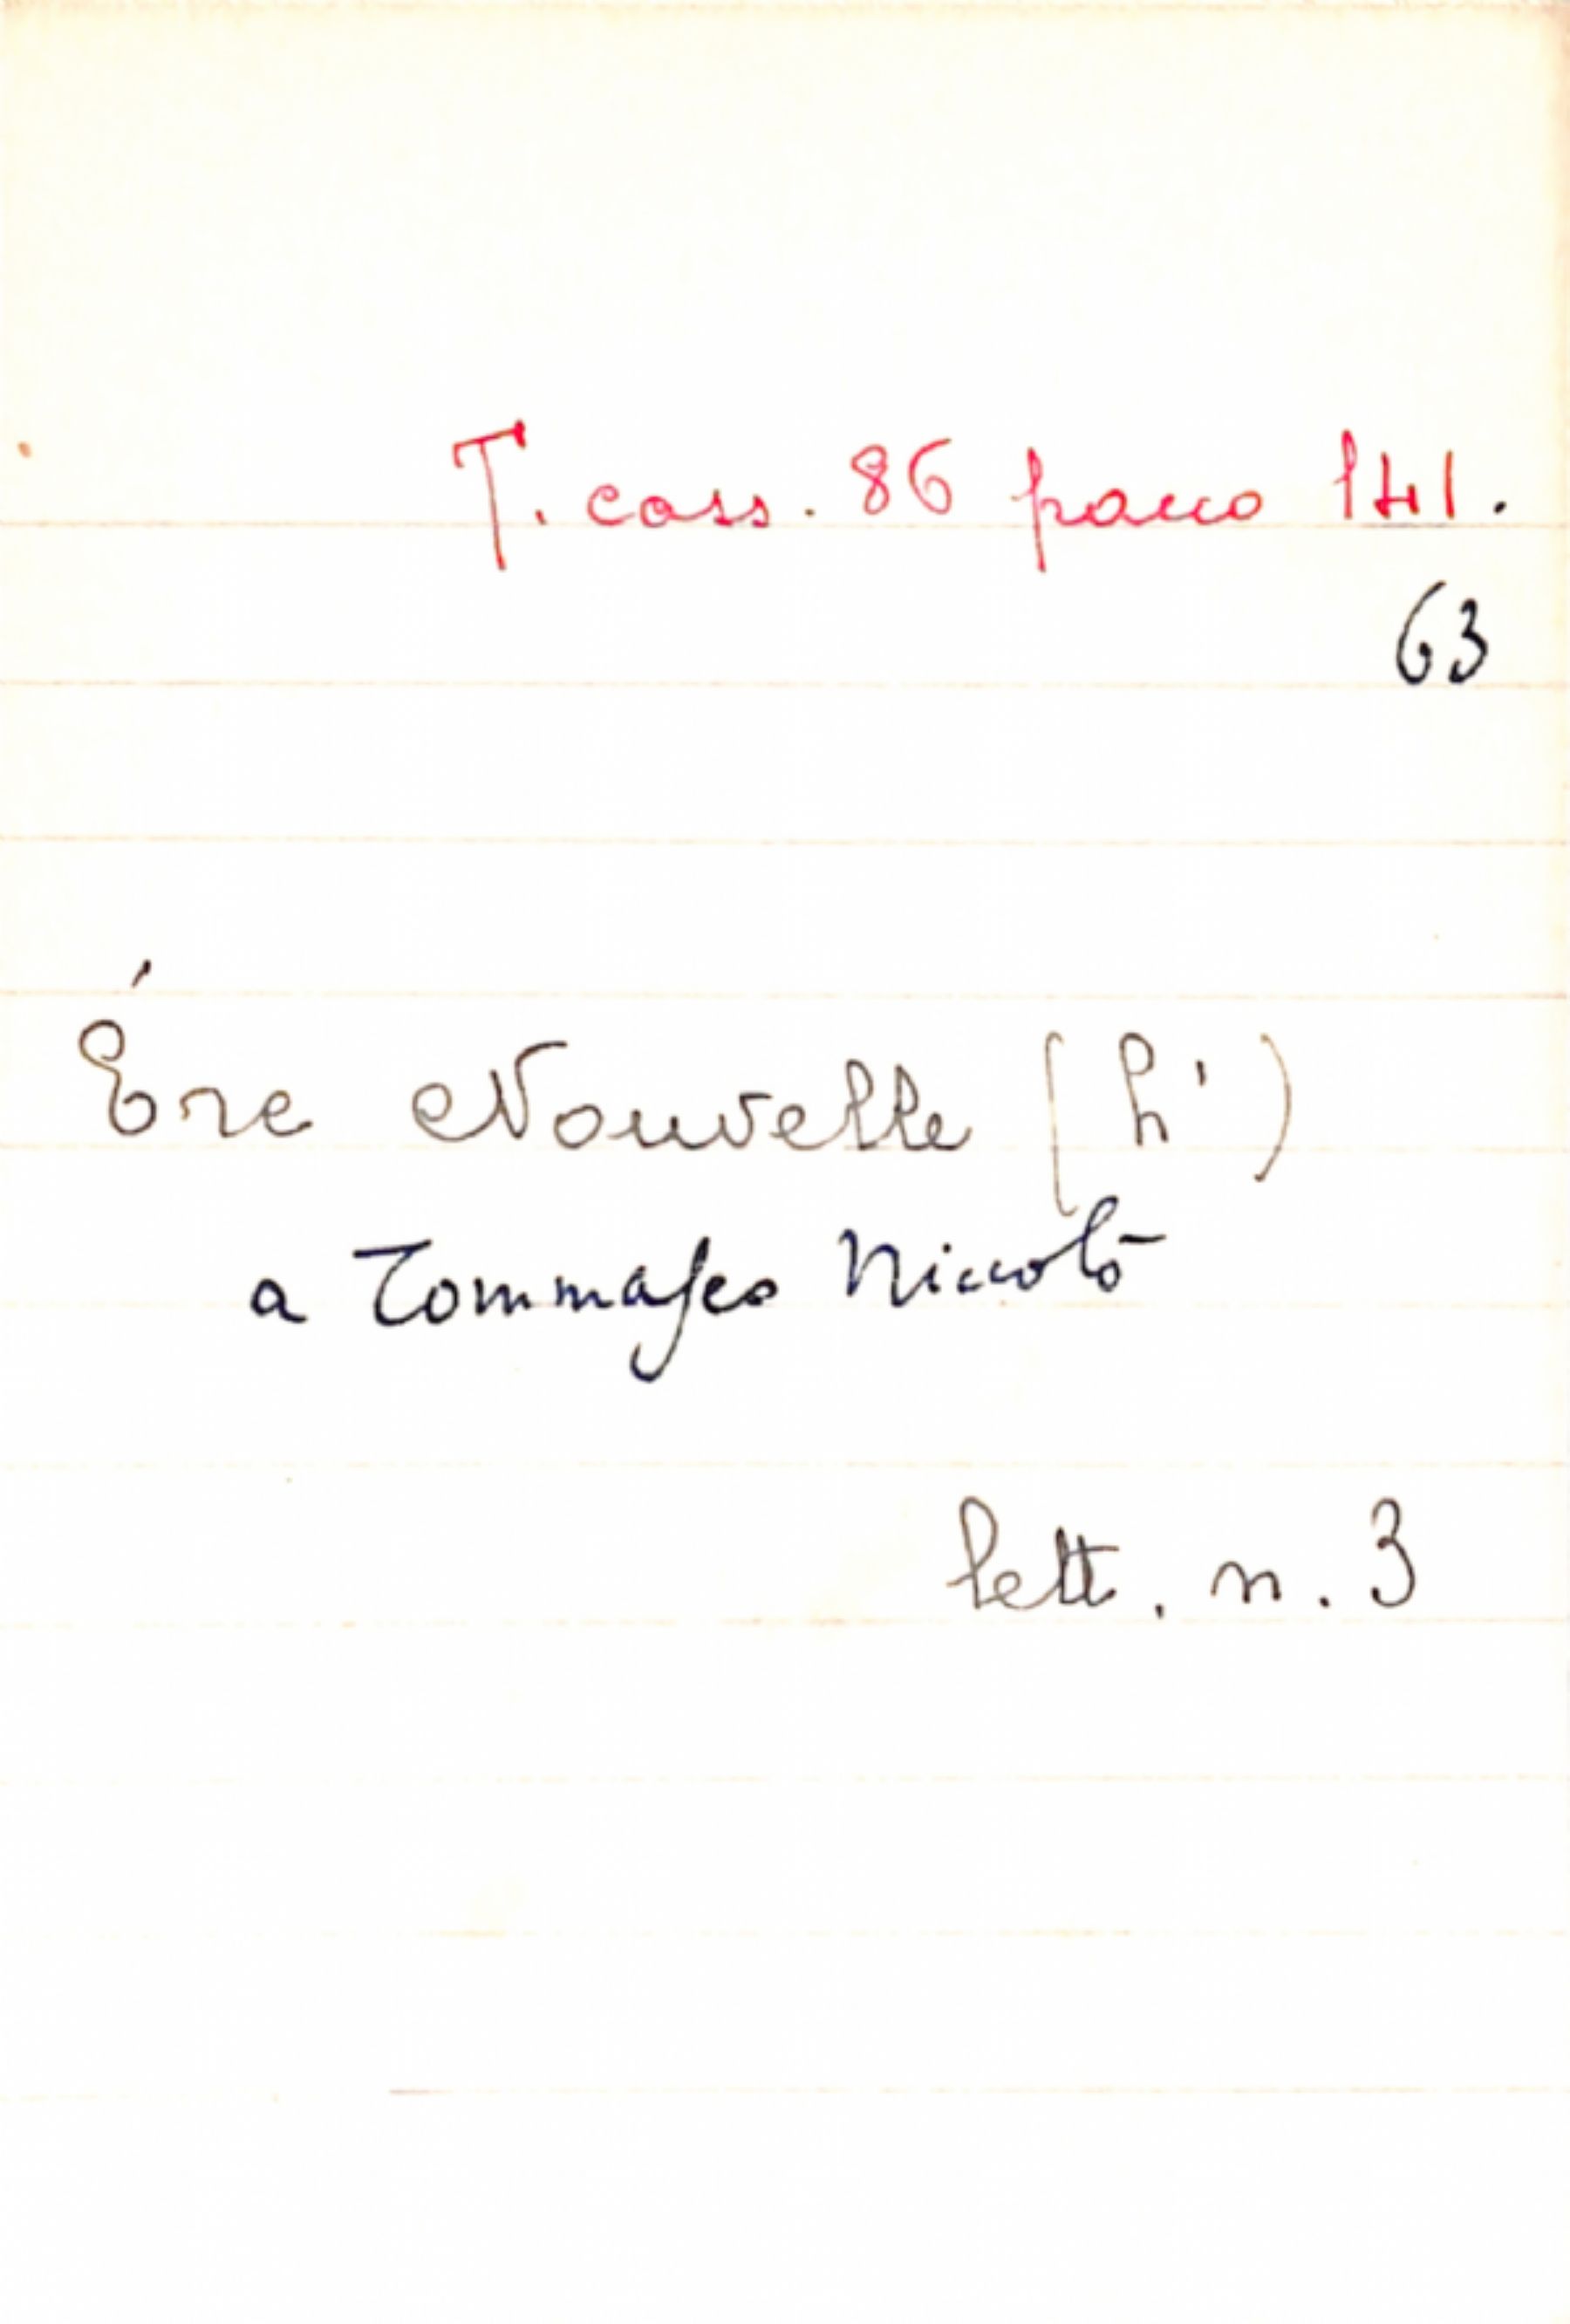 T. cass. 86 pacco 141.
63
Ére Nouvelle (L')
a Tommaseo Niccolò
lett. n. 3